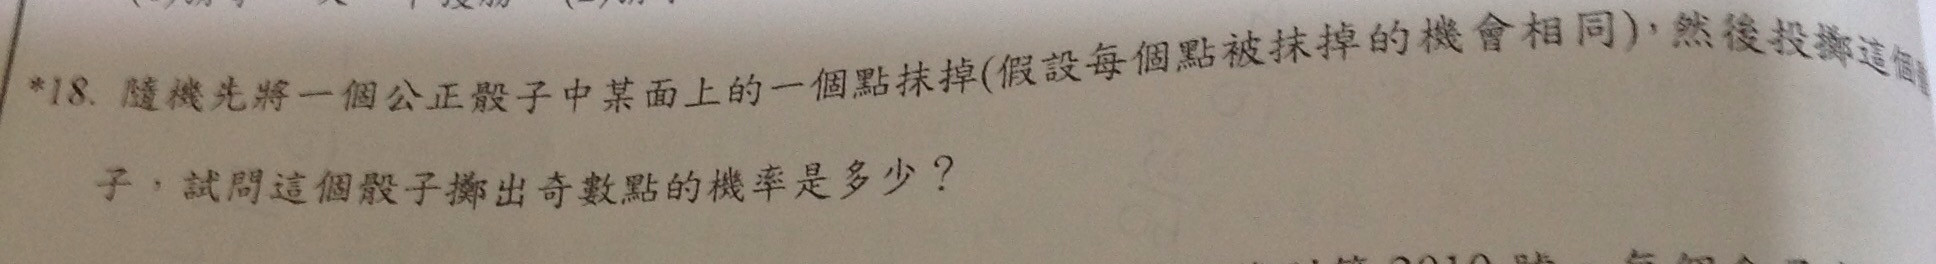 *18. 隨機先將一個公正骰子中某面上的一個點抹掉(假設每個點被抹掉的機會相同)，然後投擲這個
子，試問這個骰子擲出奇數點的機率是多少？